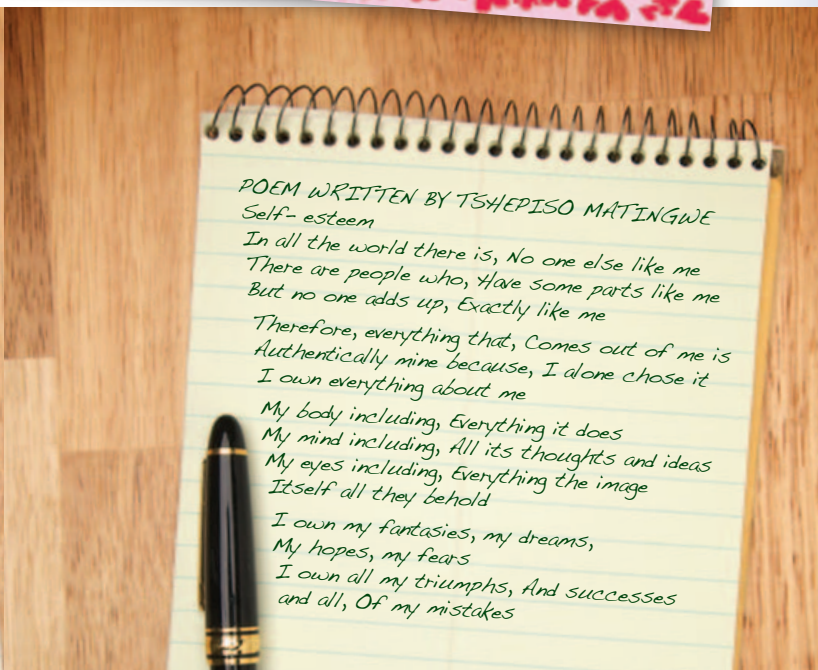 POEM WRITTEN BY TSHEPISO MATINGWE
Self- esteem
In all the world there is, No one else like me
There are people who, Have some parts like me
But no one adds up, Exactly like me
Therefore, everything that, Comes out of me is
Authentically mine because, I alone chose it
I own everything about me
My body including, Everything it does
My mind including, All its thoughts and ideas
My eyes including, Everything the image
Itself all they behold
I own my fantasies, my dreams,
My hopes, my fears
I own all my triumphs, And successes
and all, Of my mistakes